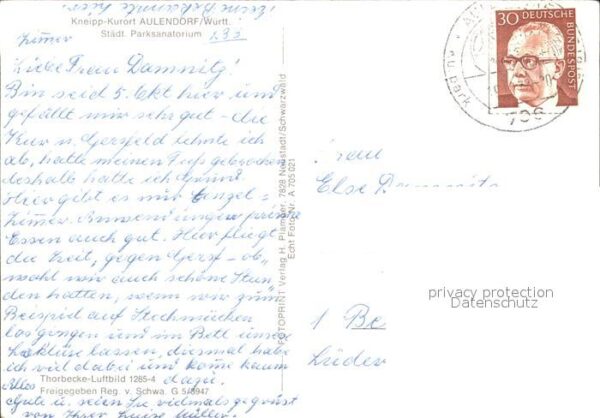 Kneipp-Kurort AULENDORF/Württ.
Städt. Parksanatorium
Zimmer 133
Liebe Frau Damnitz!
Bin seid 5. Okt hier und
gefällt mir sehr gut - die
Kur n. Gersfeld lehnte ich
ab, hatte meinen Fuß gebrochen
deshalb hatte ich Grund
Hier gibt es nur Einzel-
Zimmer. Anwendungen prima
Essen auch gut. Hier fliegt
die Zeit, gegen Gersf - ob-
wohl wir auch schöne Stun-
den hatten, wenn wir zum
Beispiel auf Stechmücken
los gingen und im Bett unsere
lassen, diesmal habe
ich viel dabei und kome kaum
dazu.
Alles Gute u. seien Sie vielmals gegrüsst
von Ihrer Luise Müller.
Thorbecke-Luftbild 1285-4
Freigegeben Reg. v. Schwa. G 5/8947
FOTOPRINT Verlag H. Plamper, 7828 Neustadt/Schwarzwald
Echt Foto Nr. A 705 021
30 DEUTSCHE
BUNDESPOST
Frau
Else Damnitz
1 Be
Lüder
privacy protection
Datenschutz